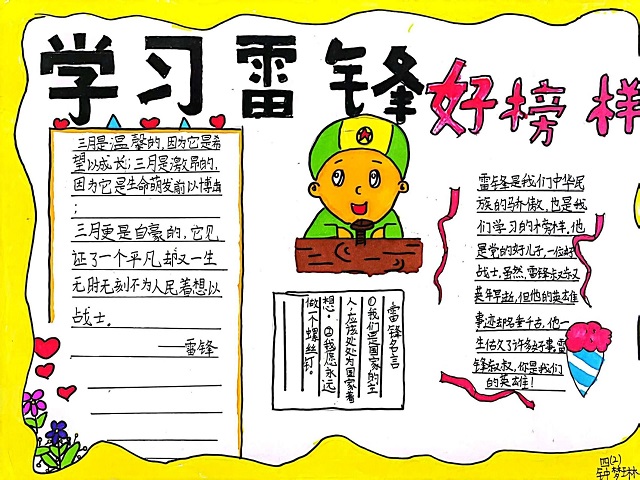 学习雷锋好榜样
三月是温馨的,因为它是希
望以成长;三月是激昂的,
因为它是生命萌发前以博
;
三月更是自豪的,它见
证了一个平凡却又一生
无时无刻不为人民着想以
战士。
——雷锋
雷锋名言
①我们是国家的主
人,应该处处为国家着
想。②我愿永远
做一个螺丝钉。
雷锋是我们中华民
族的骄傲,也是我
们学习的榜样,他
是党的好儿子,一位好
战士,虽然,雷锋叔叔
英年早逝,但他的英雄
事迹却名垂千古,他一
生做了许多好事,雷
锋叔叔,你是我们
的英雄!
四(2)
钟梦琳